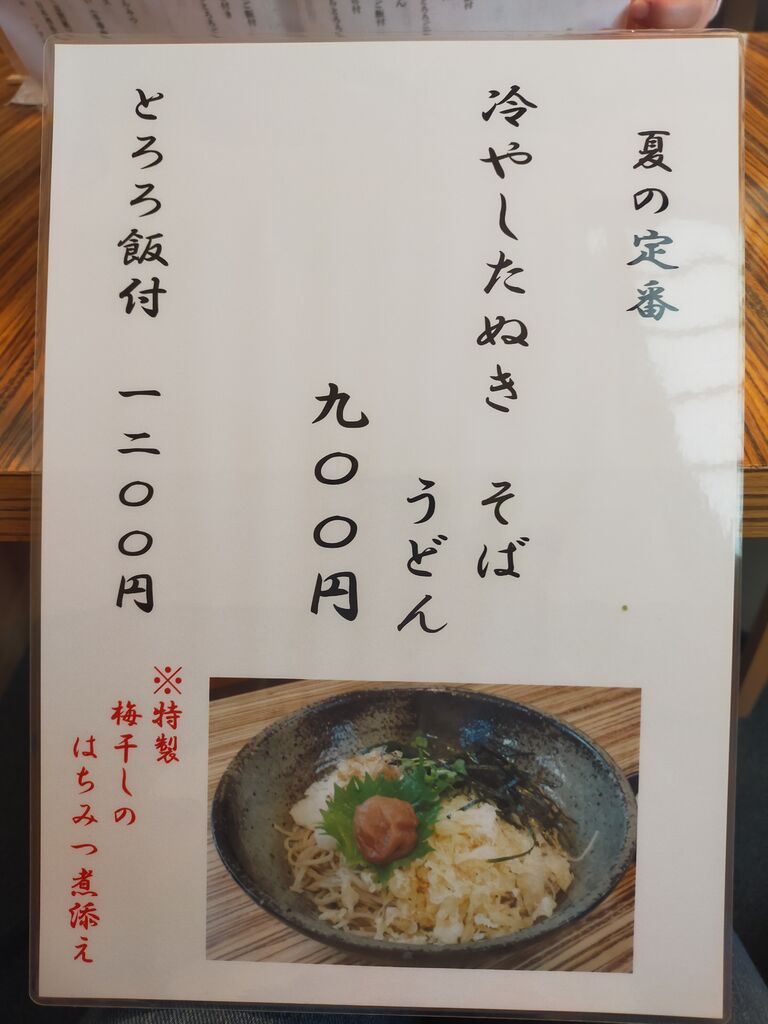 夏の定番
冷やしたぬき そば
うどん
九〇〇円
とろろ飯付 一二〇〇円
※特製
梅干しの
はちみつ煮添え